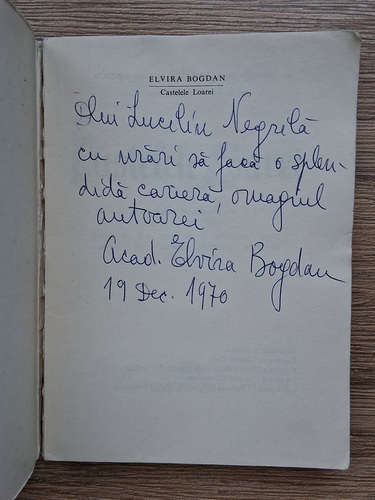 ELVIRA BOGDAN
Castelele Loarei
Dlui Lucilin Negrilă
cu urări să facă o splen-
didă carieră, omagiul
autoarei
Acad. Elvira Bogdan
19 Dec. 1970